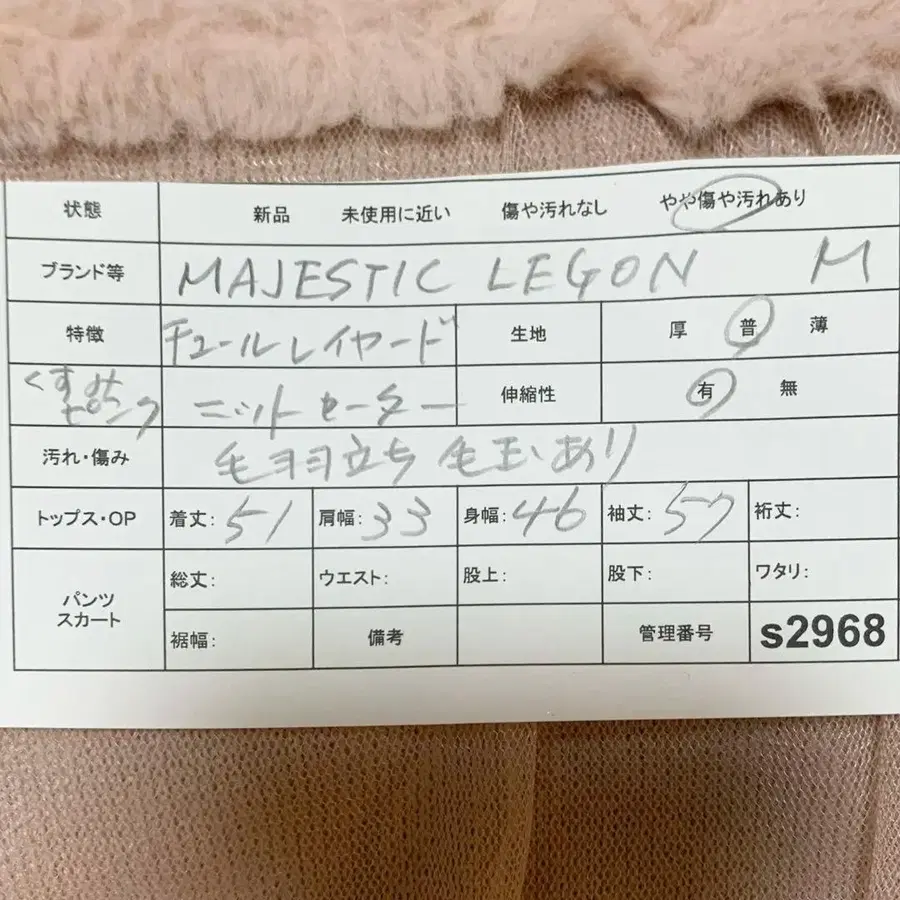 状態 新品 未使用に近い 傷や汚れなし やや傷や汚れあり
ブランド等 MAJESTIC LEGON M
特徴 チュールレイヤード 生地 厚 普 薄
くすみピンク ニットセーター 伸縮性 有 無
汚れ・傷み 毛ヨヨ立ち 毛玉あり
トップス・OP 着丈: 51 肩幅: 33 身幅: 46 袖丈: 57 裄丈:
パンツ スカート 総丈: ウエスト: 股上: 股下: ワタリ:
裾幅: 備考 管理番号 s2968